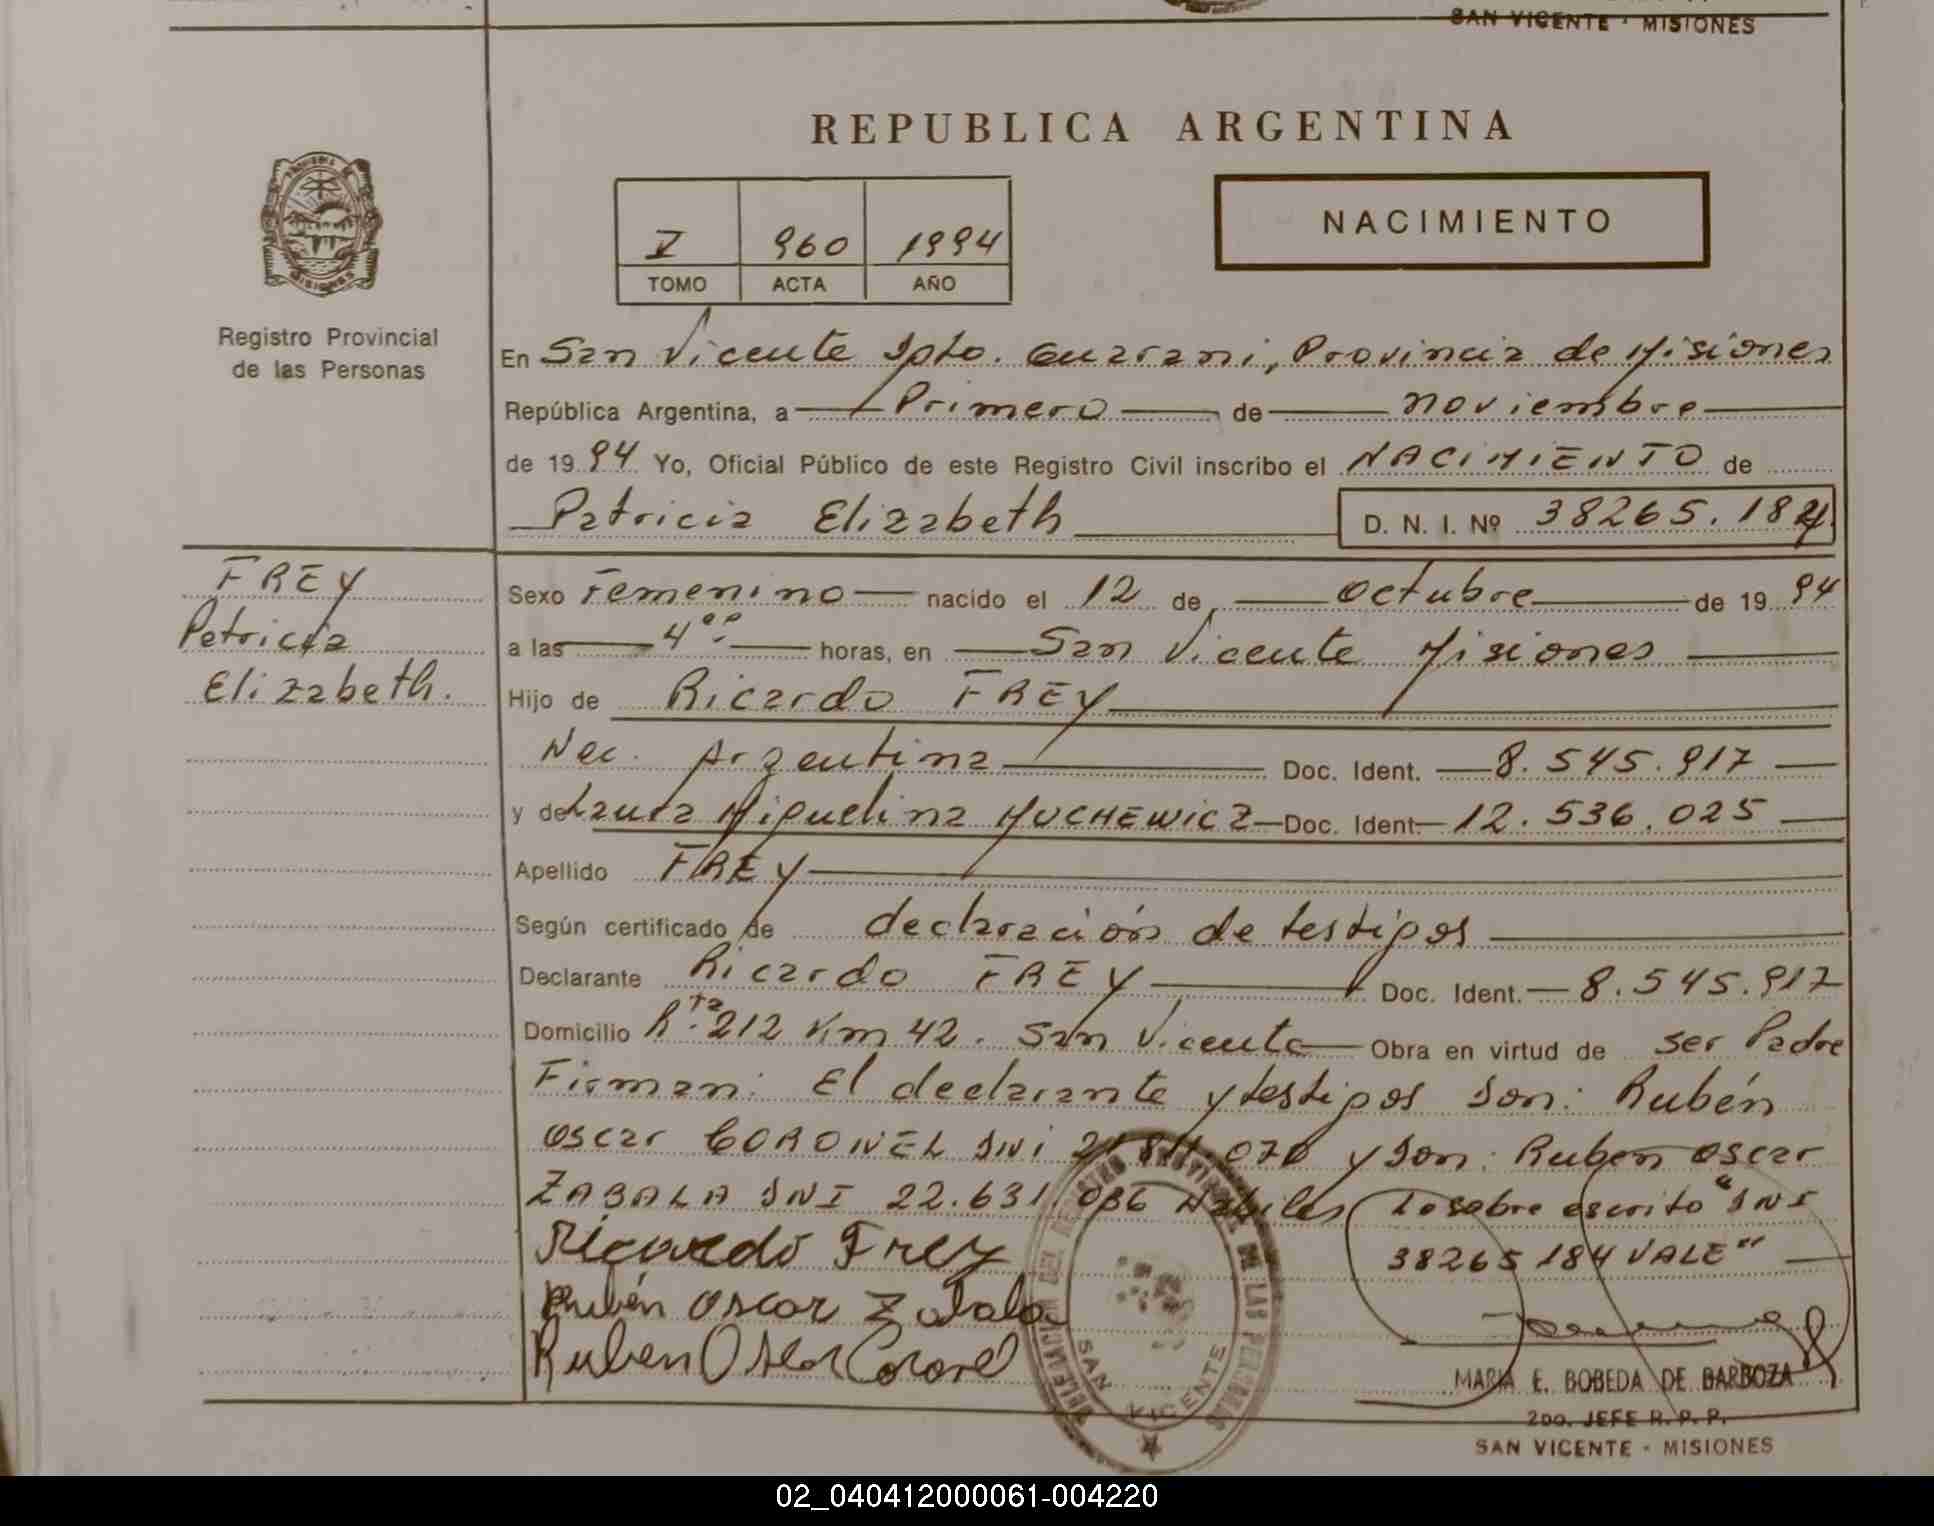 SAN VICENTE - MISIONES
REPUBLICA ARGENTINA
NACIMIENTO
V 960 1994
TOMO ACTA AÑO
Registro Provincial
de las Personas
En San Vicente Dpto. Guarani, Provincia de Misiones
República Argentina, a Primero de noviembre
de 1994 Yo, Oficial Público de este Registro Civil inscribo el NACIMIENTO de
Patricia Elizabeth D. N. I. Nº 38265.184
FREY
Patricia
Elizabeth.
Sexo Femenino nacido el 12 de octubre de 1994
a las 4 horas, en San Vicente Misiones
Hijo de Ricardo FREY
Nac. Argentina Doc. Ident. 8.545.917
y de Laura Miguelina MUCHEWICZ Doc. Ident. 12.536.025
Apellido FREY
Según certificado de declaración de testigos
Declarante Ricardo FREY Doc. Ident. 8.545.917
Domicilio Rta. 212 Km 42. San Vicente Obra en virtud de ser Padre
Firman: El declarante y testigos Don: Rubén
Oscar CORONEL DNI 070 y Don: Ruben Oscar
ZABALA DNI 22.631.036 Habiles Lo sobre escrito "DNI
38265184 VALE"
Ricardo Frey
Rubén Oscar Zabala
Ruben Oscar Coronel
DELEGACION DEL REGISTRO PROVINCIAL DE LAS PERSONAS
SAN VICENTE
MARIA E. BOBEDA DE BARBOZA
2DO. JEFE R. P. P.
SAN VICENTE - MISIONES
02_040412000061-004220